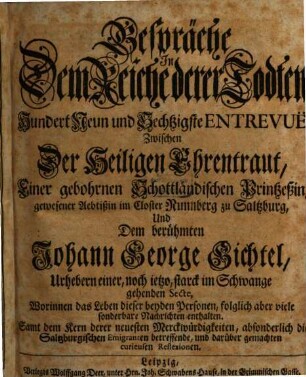 Gespräche
In
Dem Reiche derer Todten
Hundert Neun und Sechtzigste ENTREVUË
Zwischen
Der Heiligen Ehrentraut,
Einer gebohrnen Schottländischen Printzeßin,
gewesener Aebtißin im Closter Nunnberg zu Saltzburg,
Und
Dem berühmten
Johann George Gichtel,
Urhebern einer, noch ietzo, starck im Schwange
gehenden Secte,
Worinnen das Leben dieser beyden Personen, folglich aber viele
sonderbare Nachrichten enthalten.
Samt dem Kern derer neuesten Merckwürdigkeiten, absonderlich die
Saltzburgischen Emigranten betreffende, und darüber gemachten
curieusen Reflexionen.
Leipzig,
Verlegts Wolffgang Deer, unter Hrn. Joh. Schwabens Hause, in der Grimmischen Gasse.